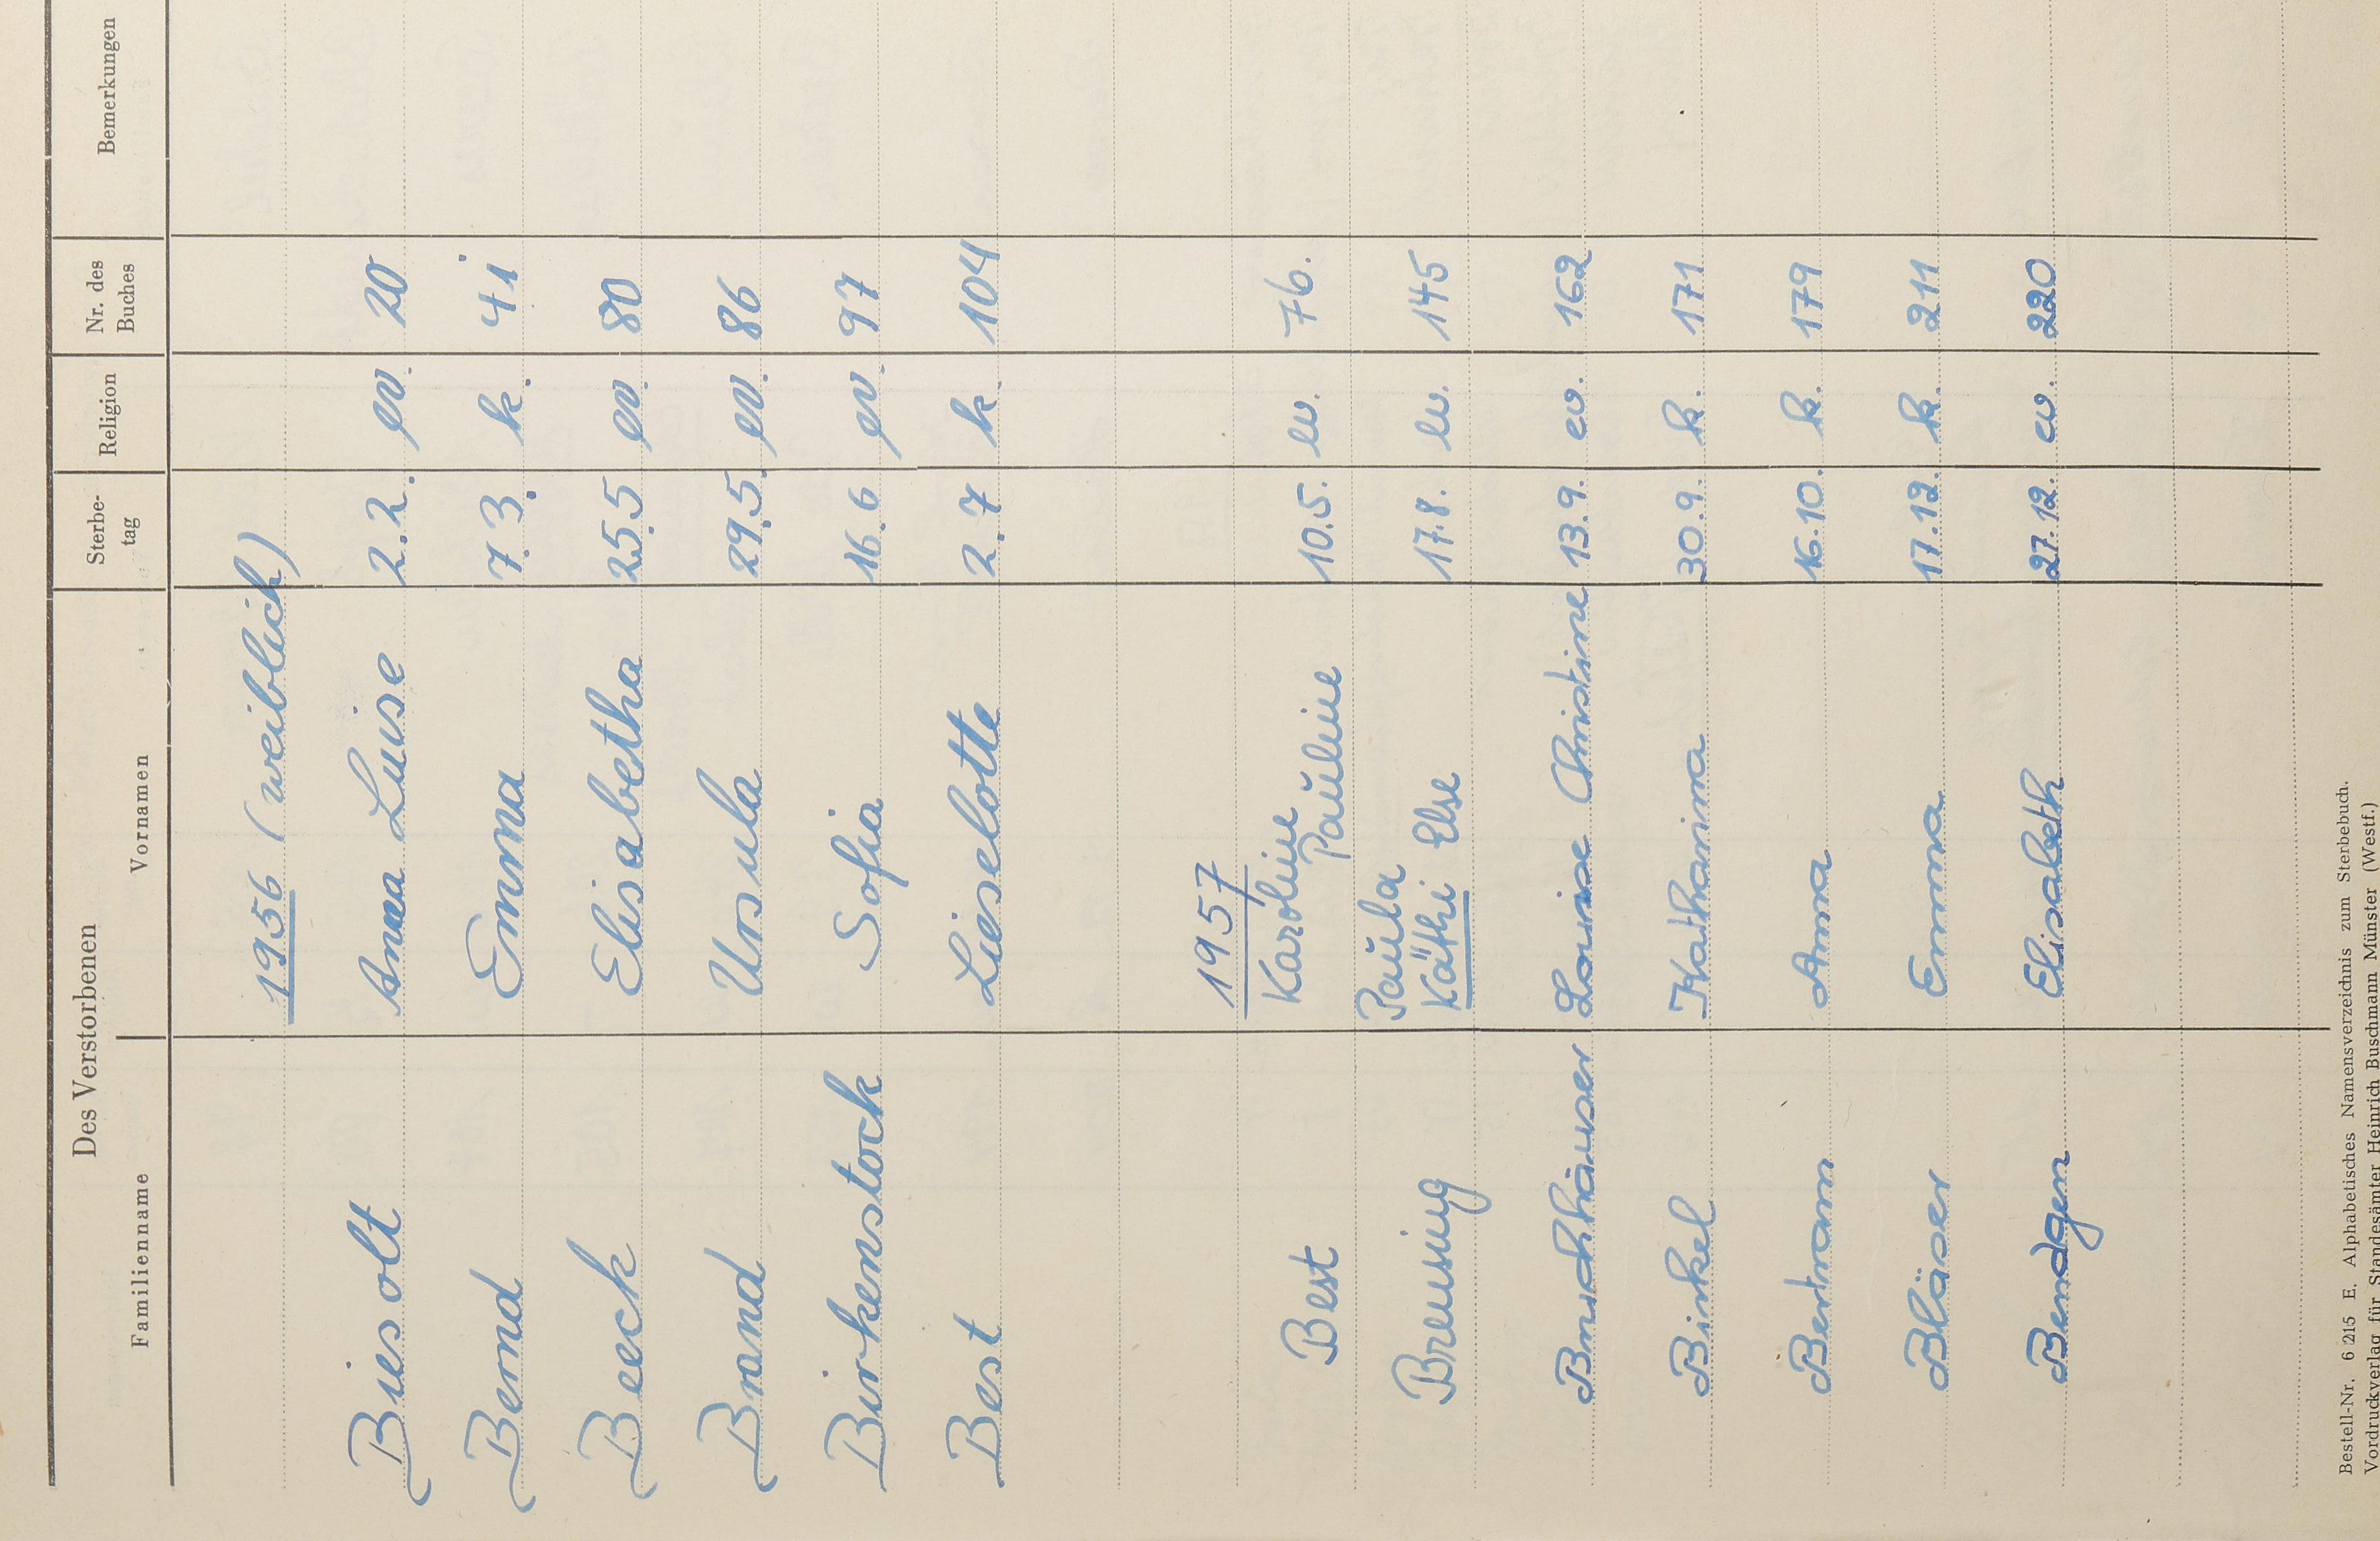 Des Verstorbenen
Familienname Vornamen Sterbe-tag Religion Nr. des Buches Bemerkungen
1956 (weiblich)
Biesolt Anna Luise 2.2. ev. 20
Bernd Emma 7.3. k. 41
Beeck Elisabetha 25.5 ev. 80
Brand Ursula 29.5. ev. 86
Birkenstock Sofia 16.6 ev. 97
Best Lieselotte 2.7 k. 104
1957
Best Karoline Pauline 10.5. ev. 76.
Breusing Paula Käthi Else 17.8. ev. 145
Bruchhäuser Louise Christine 13.9. ev. 162
Birkel Katharina 30.9. k. 171
Bertram Anna 16.10. k. 179
Bläser Emma 17.12. k. 211
Bendgen Elisabeth 27.12. ev. 220
Bestell-Nr. 6 215 E. Alphabetisches Namensverzeichnis zum Sterbebuch.
Vordruckverlag für Standesämter Heinrich Buschmann Münster (Westf.)